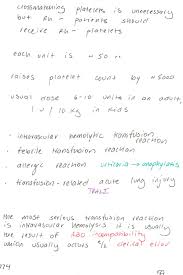 crossmatching platelets is unnecessary
but Rh- patients should
receive Rh- platelets
each unit is ~ 50
raises platelet count by ~ 5000
usual dose 6-10 units in an adult,
1 u / 10 kg in kids
• intravascular hemolytic transfusion reaction
• febrile transfusion reaction
• allergic reaction urticaria → anaphylaxis
• transfusion-related acute lung injury
TRALI
the most serious transfusion reaction
is intravascular hemolysis it is usually
the result of ABO compatibility
which usually occurs clerical error